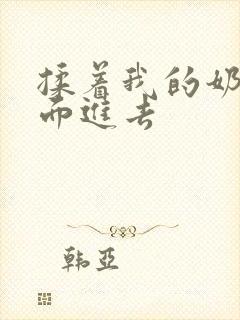 揉着我的奶
而进去
韩亚